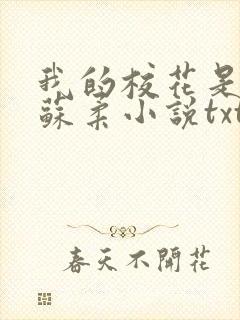 我的校花是
蘇柔小説txt
春天不開花